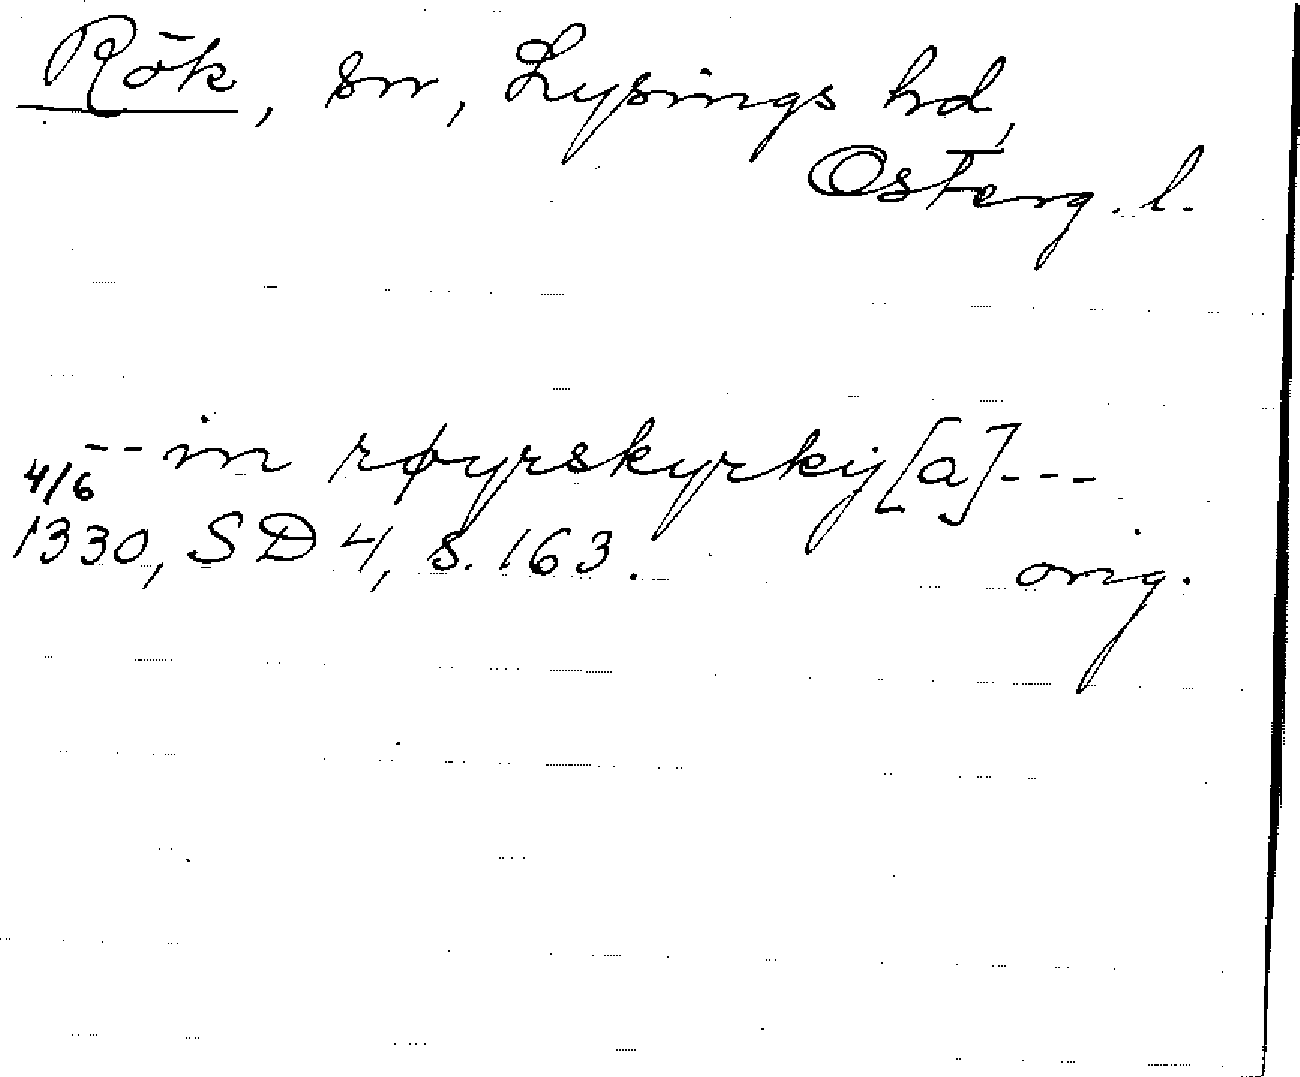 Rök, sn, Lysings hd,
Österg. l.
--in røyrskyrkij[a]---
4/6
1330, SD 4, s. 163. orig.